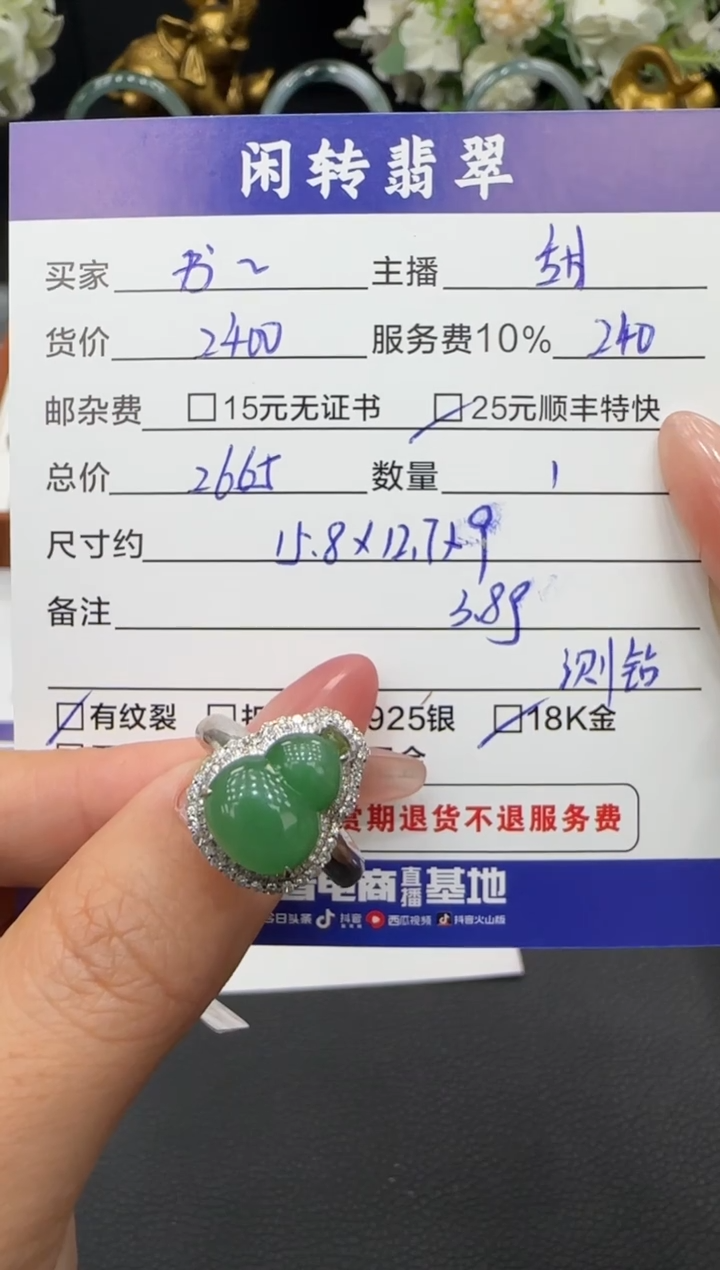 闲转翡翠
买家 书~ 主播 甜
货价 2400 服务费10% 240
邮杂费 15元无证书 25元顺丰特快
总价 2665 数量 1
尺寸约 15.8×12.7×9
备注 3.8g
测钻
有纹裂 925银 18K金
金
期退货不退服务费
电商直播基地
今日头条 抖音 西瓜视频 抖音火山版